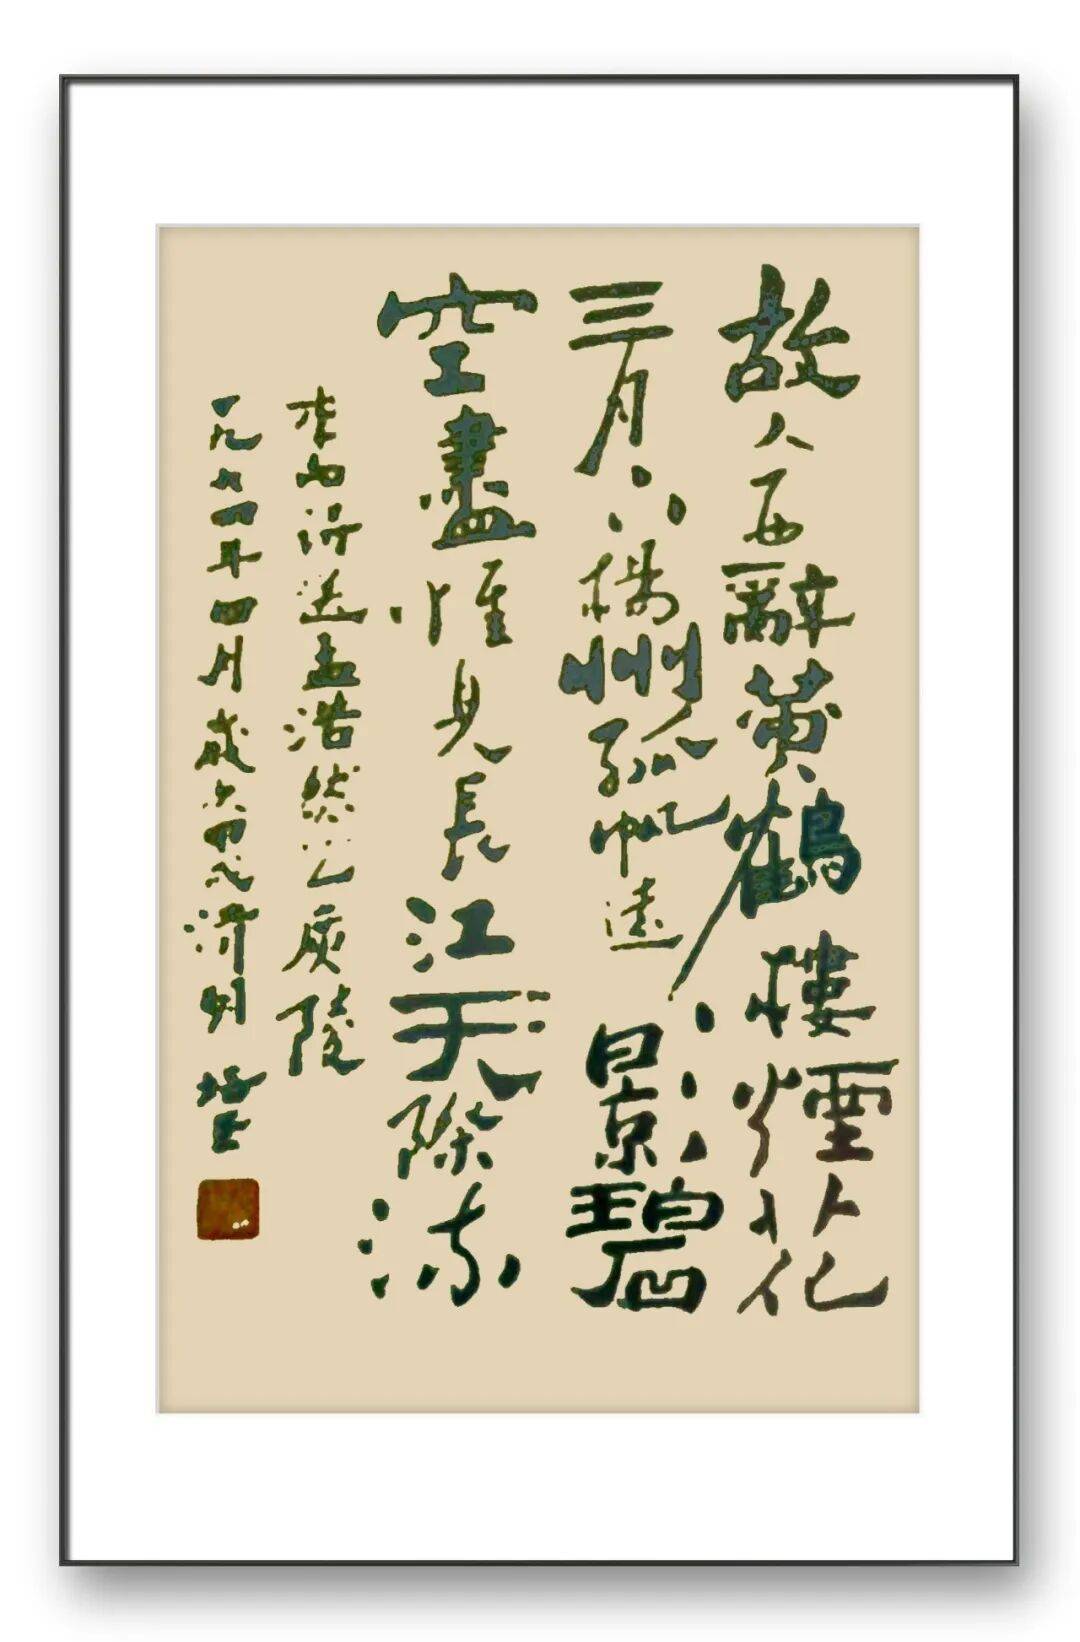 故人西辭黄鶴樓煙花
三月下揚州孤帆遠影碧
空盡惟見長江天際流
李白詩送孟浩然之廣陵
一九九四年四月濟州